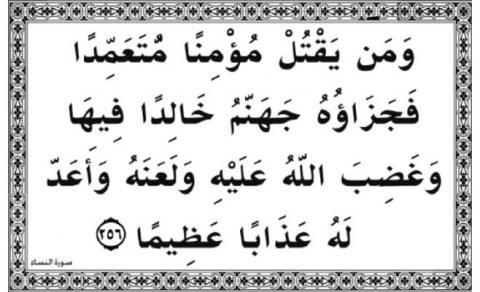 وَمَن يَقْتُلْ مُؤْمِنًا مُتَعَمِّدًا
فَجَزَاؤُهُ جَهَنَّمُ خَالِدًا فِيهَا
وَغَضِبَ اللَّهُ عَلَيْهِ وَلَعَنَهُ وَأَعَدَّ
لَهُ عَذَابًا عَظِيمًا ٢٥٦
سورة النساء